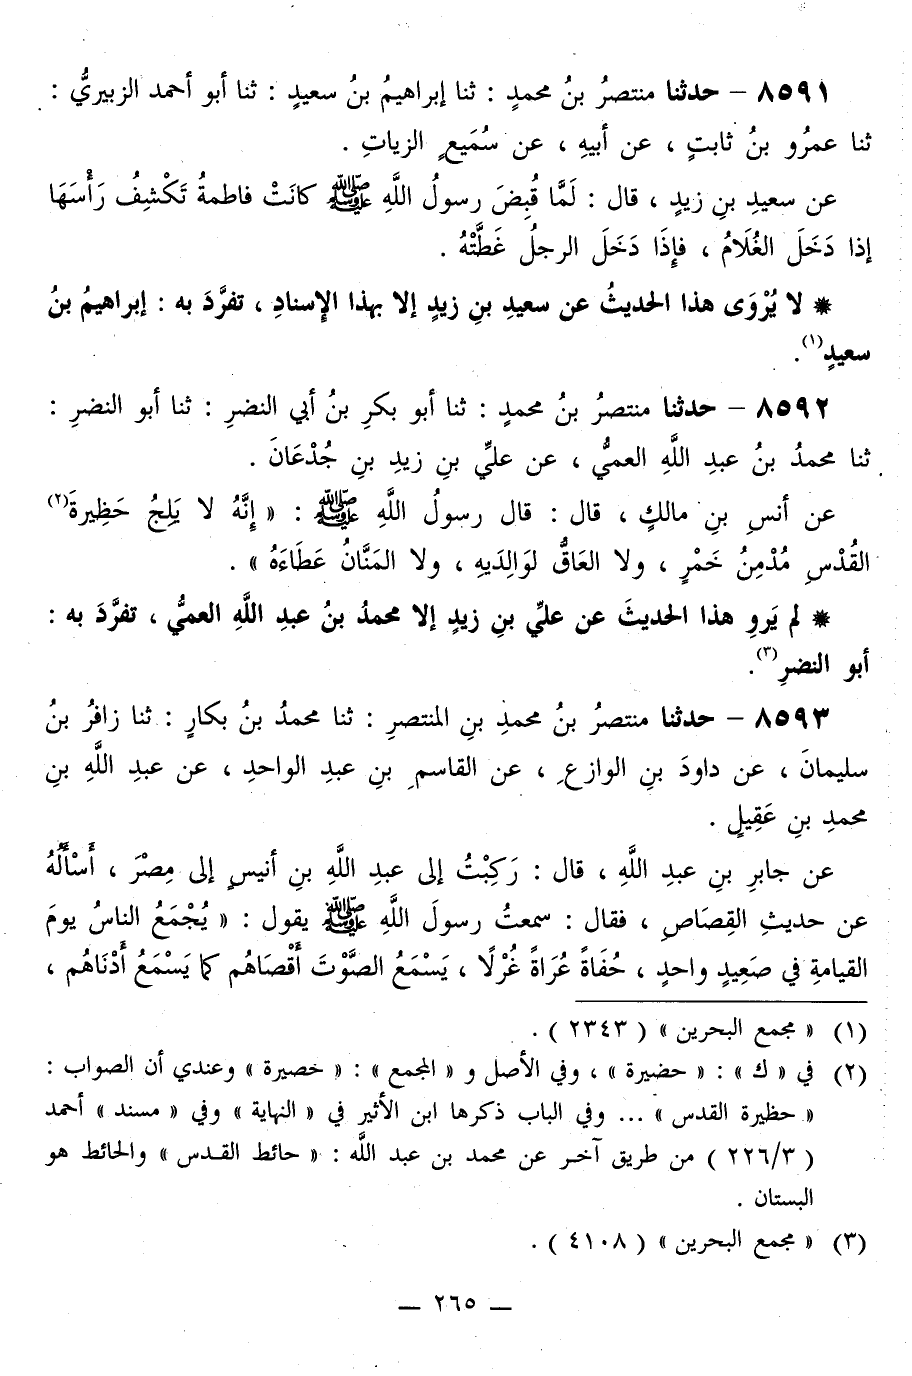 ٨٥٩١ – حدثنا منتصرُ بنُ محمدٍ : ثنا إبراهيمُ بنُ سعيدٍ : ثنا أبو أحمد الزبيريُّ :
ثنا عمرُو بنُ ثابتٍ ، عن أبيهِ ، عن سُمَيعٍ الزياتِ .
عن سعيدِ بنِ زيدٍ ، قال : لَمَّا قُبِضَ رسولُ اللَّهِ ﷺ كانَتْ فاطمةُ تَكْشِفُ رَأْسَهَا
إذا دَخَلَ الغُلَامُ ، فإِذَا دَخَلَ الرجلُ غَطَّتْهُ .
* لا يُرْوَى هذا الحديثُ عن سعيدِ بنِ زيدٍ إلا بهذا الإِسنادِ ، تفرَّدَ به : إبراهيمُ بنُ
سعيدٍ(١).
٨٥٩٢ – حدثنا منتصرُ بنُ محمدٍ : ثنا أبو بكرِ بنُ أبي النضرِ : ثنا أبو النضرِ :
ثنا محمدُ بنُ عبدِ اللَّهِ العميُّ ، عن عليِّ بنِ زيدِ بنِ جُدْعَانَ .
عن أنسِ بنِ مالكٍ ، قال : قال رسولُ اللَّهِ ﷺ : « إِنَّهُ لا يَلِجُ حَظِيرةَ(٢)
القُدْسِ مُدْمِنُ خَمْرٍ ، ولا العَاقُّ لوَالِدَيهِ ، ولا المَنَّانُ عَطَاءَهُ » .
* لم يَروِ هذا الحديثَ عن عليِّ بنِ زيدٍ إلا محمدُ بنُ عبدِ اللَّهِ العميُّ ، تفرَّدَ به :
أبو النضرِ(٣).
٨٥٩٣ – حدثنا منتصرُ بنُ محمدِ بنِ المنتصرِ : ثنا محمدُ بنُ بكارٍ : ثنا زافرُ بنُ
سليمانَ ، عن داودَ بنِ الوازعِ ، عن القاسمِ بنِ عبدِ الواحدِ ، عن عبدِ اللَّهِ بنِ
محمدِ بنِ عَقِيلٍ .
عن جابرِ بنِ عبدِ اللَّهِ ، قال : رَكِبْتُ إلى عبدِ اللَّهِ بنِ أنيسٍ إلى مِصْرَ ، أَسْأَلُهُ
عن حديثِ القِصَاصِ ، فقال : سمعتُ رسولَ اللَّهِ ﷺ يقول : « يُجْمَعُ الناسُ يومَ
القيامةِ في صَعِيدٍ واحدٍ ، حُفَاةً عُرَاةً غُرْلًا ، يَسْمَعُ الصَّوْتَ أَقْصَاهُم كما يَسْمَعُ أَدْنَاهُم ،
(١) « مجمع البحرين » ( ٢٣٤٣ ) .
(٢) في « ك » : « حضيرة » ، وفي الأصل و « المجمع » : « خصيرة » وعندي أن الصواب :
« حظيرة القدس » ... وفي الباب ذكرها ابن الأثير في « النهاية » وفي « مسند » أحمد
( ٢٢٦/٣ ) من طريق آخر عن محمد بن عبد اللَّه : « حائط القدس » والحائط هو
البستان .
(٣) « مجمع البحرين » ( ٤١٠٨ ) .
– ٢٦٥ –